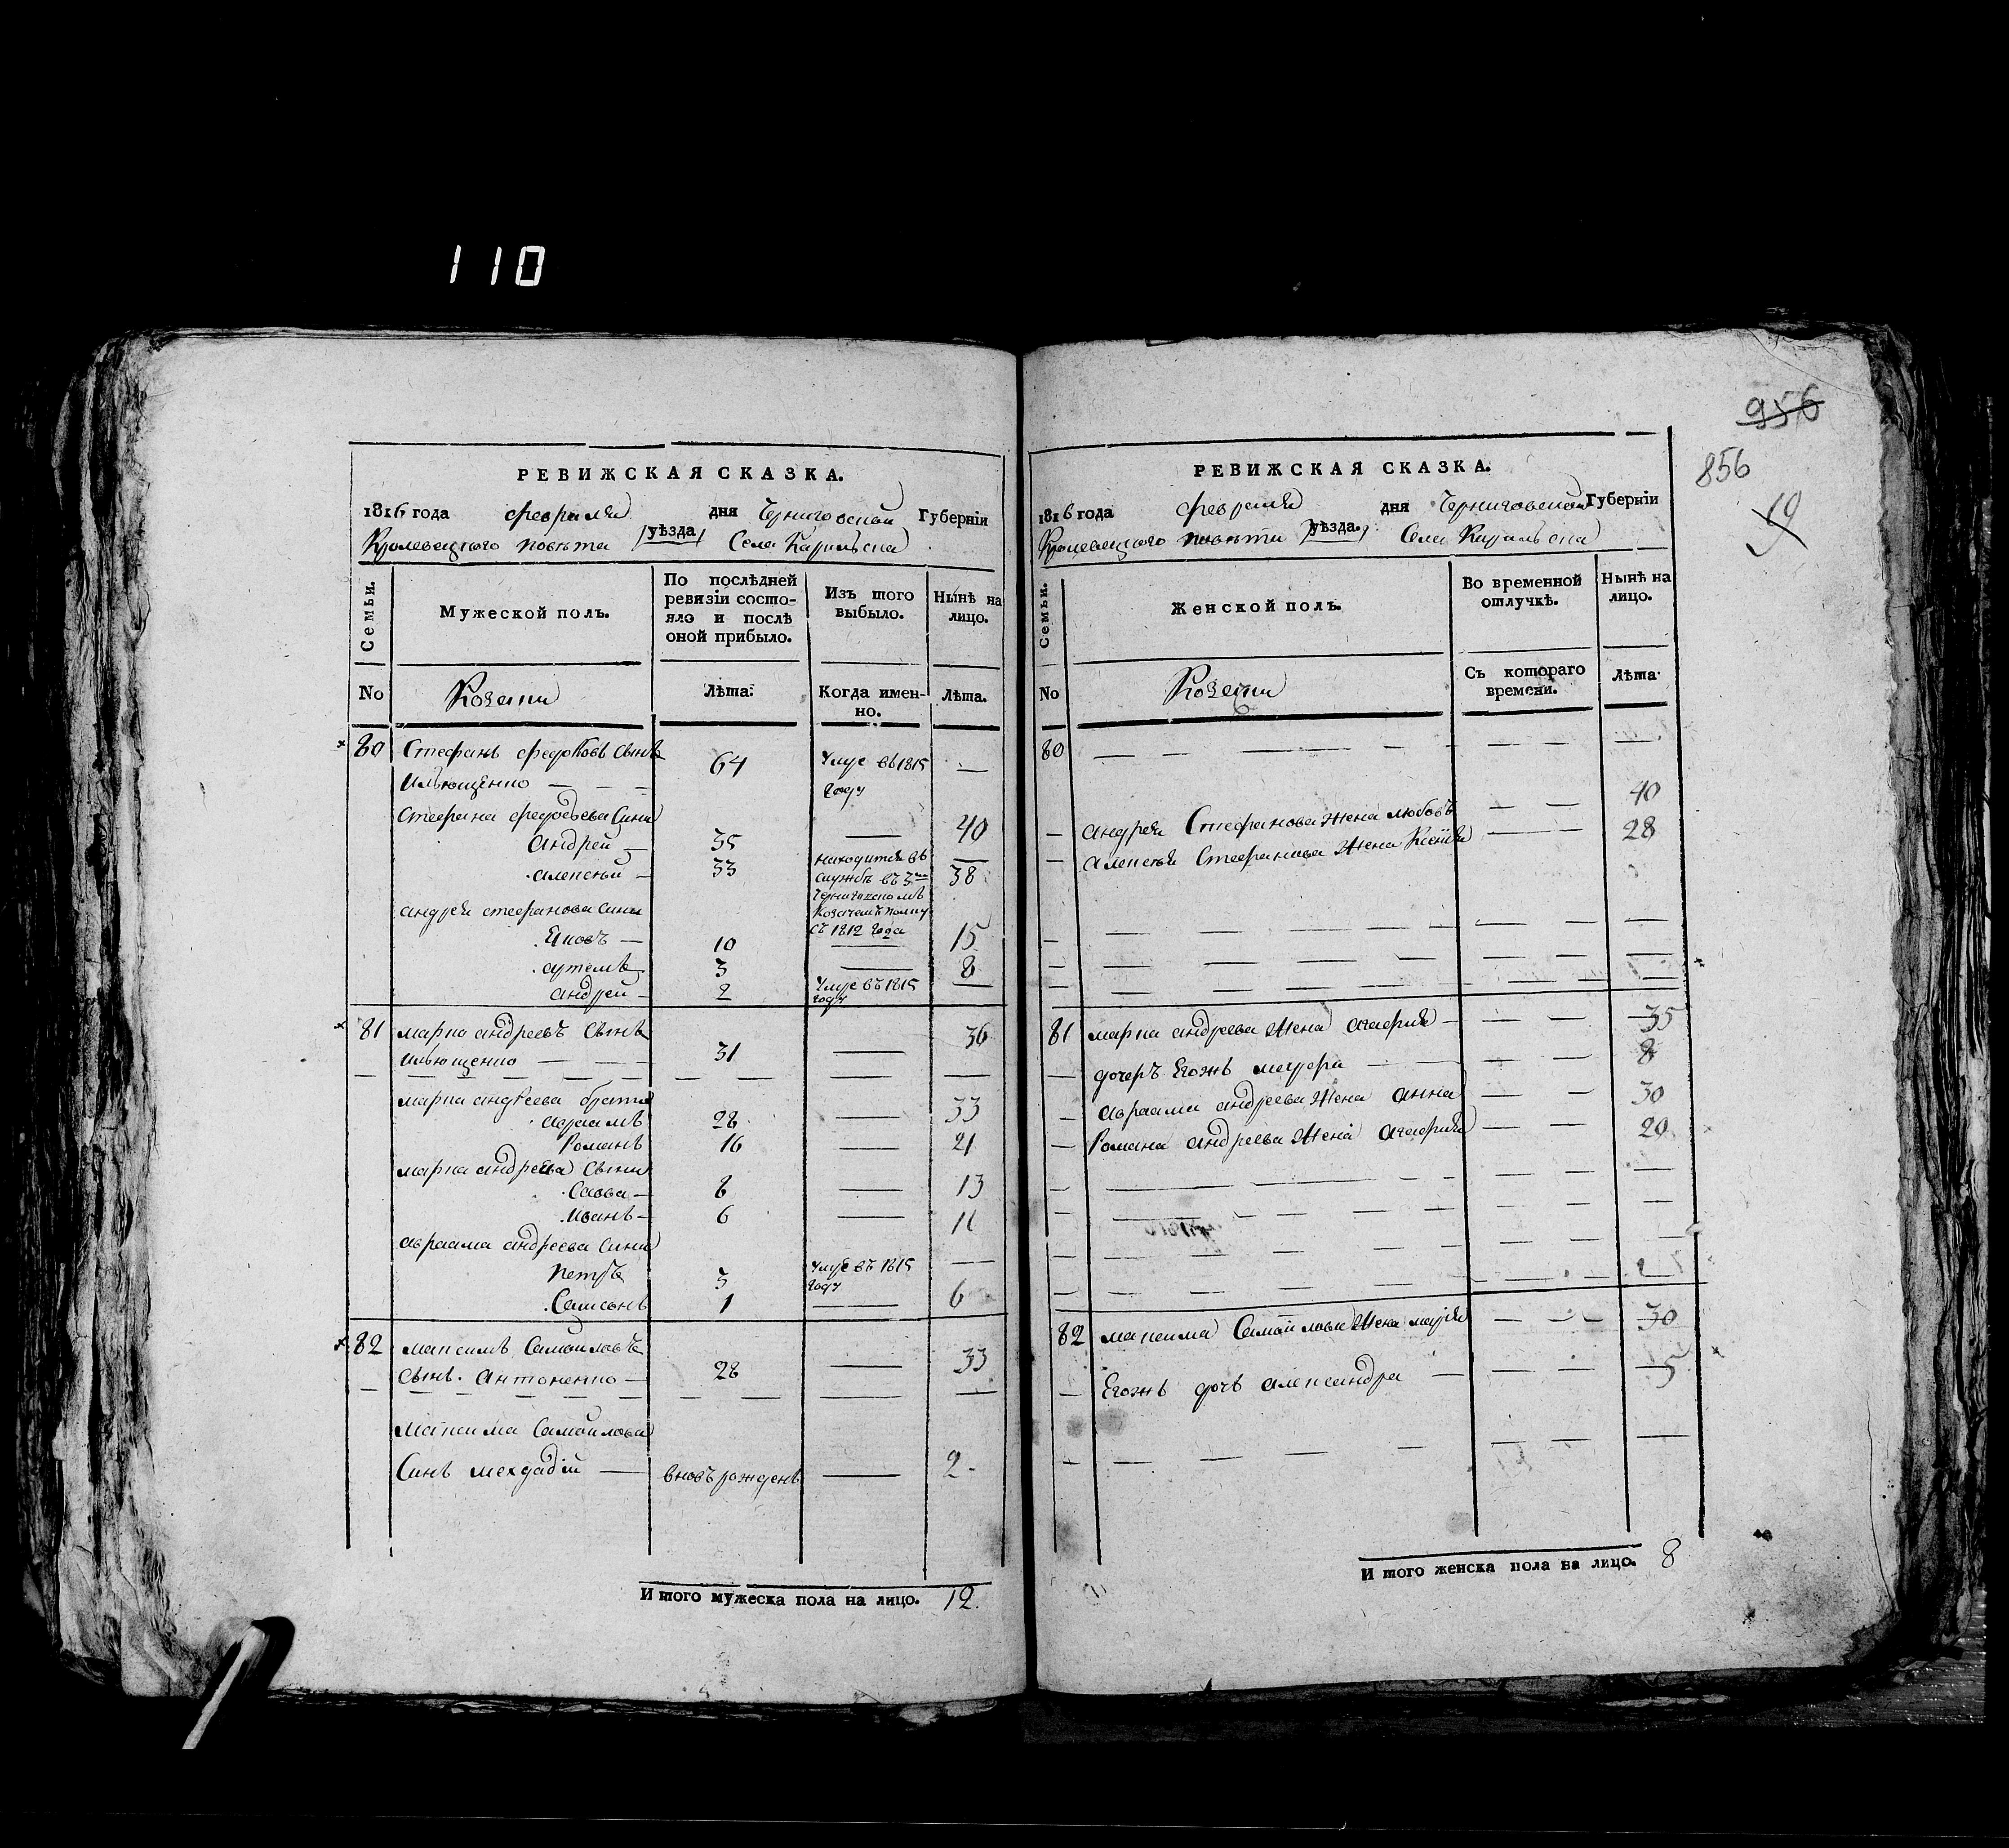 110
РЕВИЖСКАЯ СКАЗКА.
1816 года февраля дня Черниговской Губернiи
Кролевецкого повета уѣзда Села Карильска
Семьи. Мужеской полъ. По послѣдней ревизiи состояло и послѣ оной прибыло. Изъ того выбыло. Нынѣ на лицо.
No Козаки Лѣта. Когда именно. Лѣта.
80 Стефанъ федоровъ Сынъ 64 Умре въ 1815 году —
Ильющенко — — —
Стефана федорова Сини
Андрей — 35 — 40
Алексей — 33 находится въ службѣ въ 3мъ Черниговскомъ Козачемъ полку съ 1812 года 38
андрея стефанова сини
Яковъ — 10 — 15
артемъ 3 — 8
андрей — 2 Умре въ 1815 году —
81 марко андреевъ Сынъ 36
ильющенко — — — 31 —
марка андреева братья
авраамъ 28 — 33
Романъ 16 — 21
марка андреева Сыни
Савва — 8 — 13
Иванъ — 6 — 11
авраама андреева сини
Петръ 3 Умре въ 1815 году —
Самсонъ 1 — 6
82 максимъ Самойловъ 33
Сынъ. Антоненко — 28 —
максима Самойлова
Синъ — вновъ рожденъ — 2
И того мужеска пола на лицо. 12.
956
856
19
РЕВИЖСКАЯ СКАЗКА.
1816 года февраля дня Черниговской Губернiи
Кролевецкого повета уѣзда. Села Карильска
Семьи. Женской полъ. Во временной отлучкѣ. Нынѣ на лицо.
No Козаки Съ котораго времени. Лѣта.
80 — — — — — — — —
— андрея Стефанова жена любовъ — — 40
— алексея Стефанова жена Ксенiя — — 28
81 марка андреева жена агафия — — — 35
— дочеръ Егожъ — — — 8
— авраама андреева жена анна — — 30
— Романа андреева жена агафия — — 20
82 максима Самойлова жена марiя — — — 30
— Егожъ дочъ александра — — — 5
И того женска пола на лицо. 8